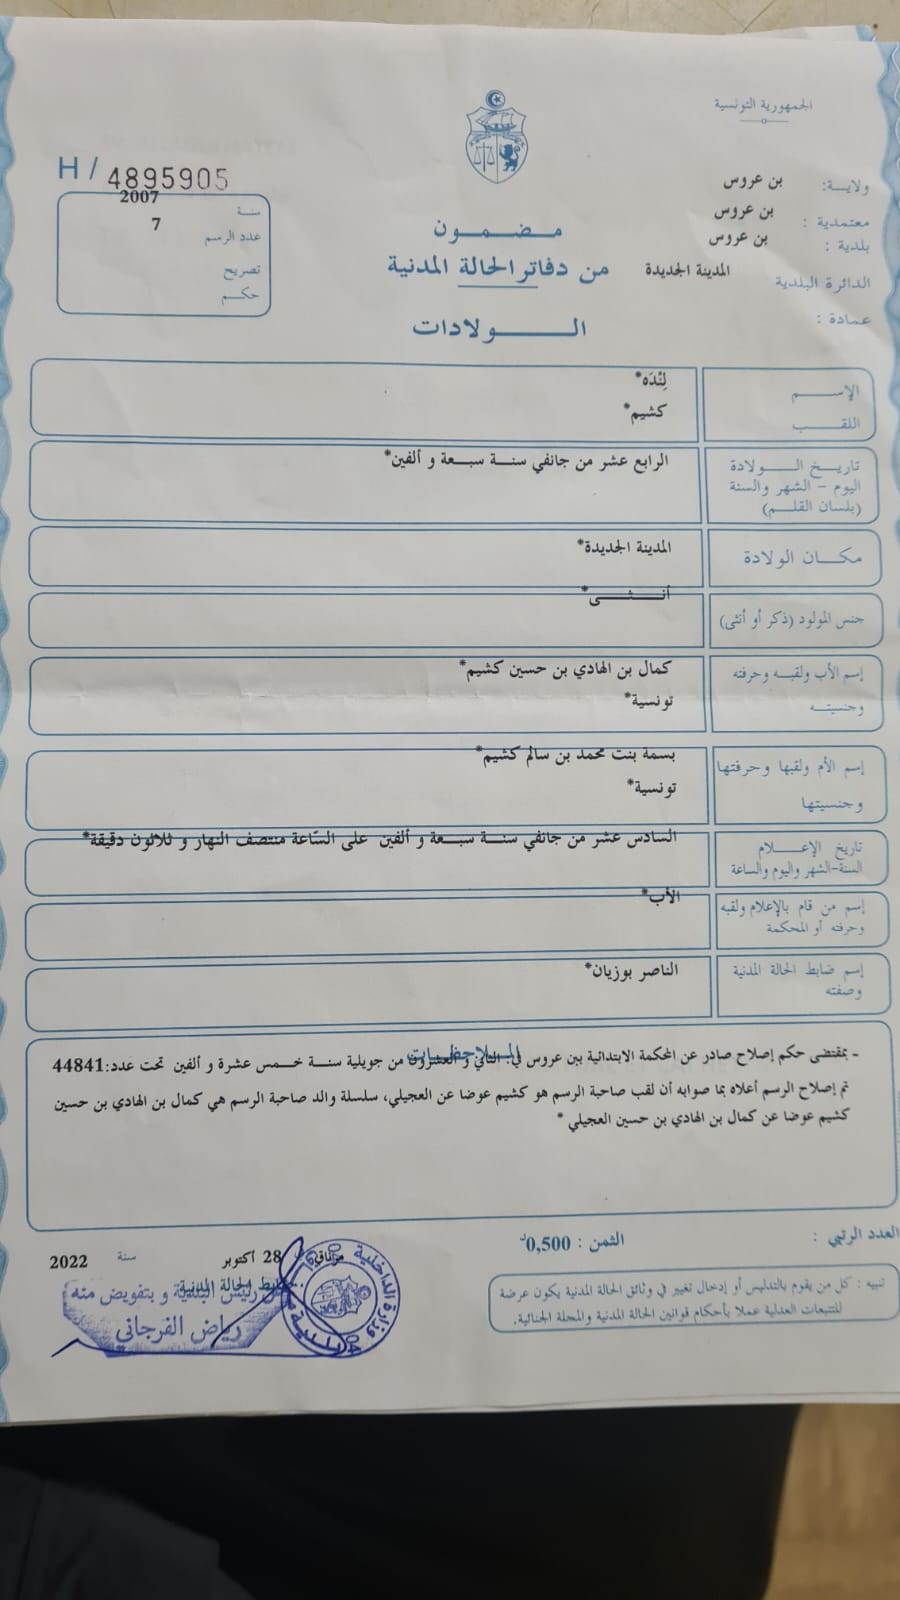 الجمهورية التونسية
ولاية: بن عروس
معتمدية : بن عروس
بلدية : بن عروس
الدائرة البلدية المدينة الجديدة
عمادة :
H / 4895905
سنة 2007
عدد الرسم 7
تصريح
حكم
مضمون
من دفاتر الحالة المدنية
الولادات
الإسم لِنْدَه*
اللقب كشيم*
تاريخ الولادة
اليوم - الشهر والسنة
(بلسان القلم)
الرابع عشر من جانفي سنة سبعة و ألفين*
مكان الولادة المدينة الجديدة*
جنس المولود (ذكر أو أنثى) أنثى*
إسم الأب ولقبه وحرفته
وجنسيته
كمال بن الهادي بن حسين كشيم*
تونسية*
إسم الأم ولقبها وحرفتها
وجنسيتها
بسمة بنت محمد بن سالم كشيم*
تونسية*
تاريخ الإعلام
السنة-الشهر واليوم والساعة
السادس عشر من جانفي سنة سبعة و ألفين على السّاعة منتصف النهار و ثلاثون دقيقة*
إسم من قام بالإعلام ولقبه
وحرفته أو المحكمة
الأب*
إسم ضابط الحالة المدنية
وصفته
الناصر بوزيان*
الملاحظات
- بمقتضى حكم إصلاح صادر عن المحكمة الابتدائية ببن عروس في: الثاني و العشرون من جويلية سنة خمس عشرة و ألفين تحت عدد:44841
تم إصلاح الرسم أعلاه بما صوابه أن لقب صاحبة الرسم هو كشيم عوضا عن العجيلي، سلسلة والد صاحبة الرسم هي كمال بن الهادي بن حسين
كشيم عوضا عن كمال بن الهادي بن حسين العجيلي *
العدد الرتبي :
الثمن : 0,500د
28 أكتوبر سنة 2022
ضابط الحالة المدنية
رئيس البلدية و بتفويض منه
رياض الفرجاني
وزارة الداخلية
تنبيه : كل من يقوم بالتدليس أو إدخال تغيير في وثائق الحالة المدنية يكون عرضة
للتتبعات العدلية عملا بأحكام قوانين الحالة المدنية والمجلة الجنائية.